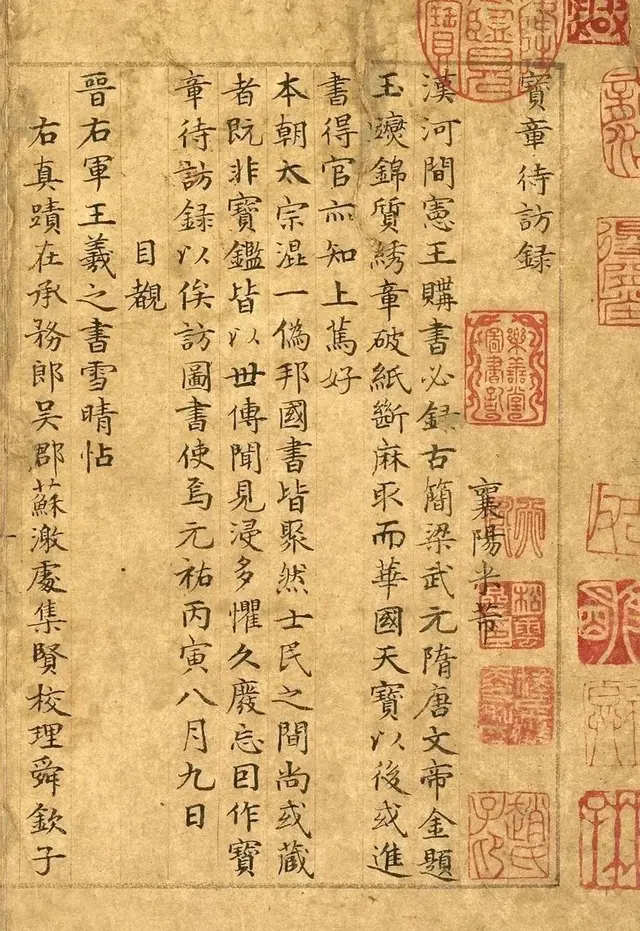 寶章待訪録
襄陽米芾
漢河間憲王購書必録古簡梁武元隋唐文帝金題
玉躞錦質綉章破紙斷麻取而華國天寶以後或進
書得官亦知上篤好
本朝太宗混一偽邦國書皆聚然士民之間尚或藏
者既非寶鑑皆以世傳聞見浸多懼久廢忘囙作寶
章待訪録以俟訪圖書使焉元祐丙寅八月九日
目覩
晉右軍王羲之書雪晴帖
右真蹟在承務郎吳郡蘇激處集賢校理舜欽子
樂善堂圖書記
趙氏子昂
松雪齋